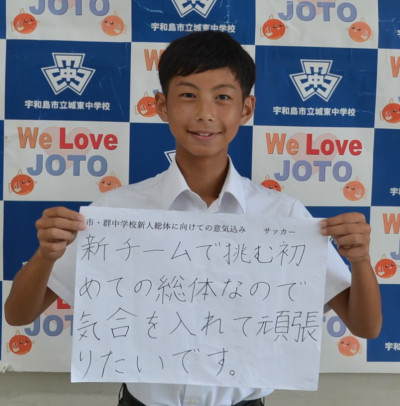 We Love
JOTO
宇和島市立城東中学校
We Love
JOTO
宇和島市立城東中学校
We Love
JOTO
宇和島市立城東中学校
We Love
JOTO
市・群中学校新人総体に向けての意気込み サッカー
新チームで挑む初
めての総体なので
気合を入れて頑張
りたいです。